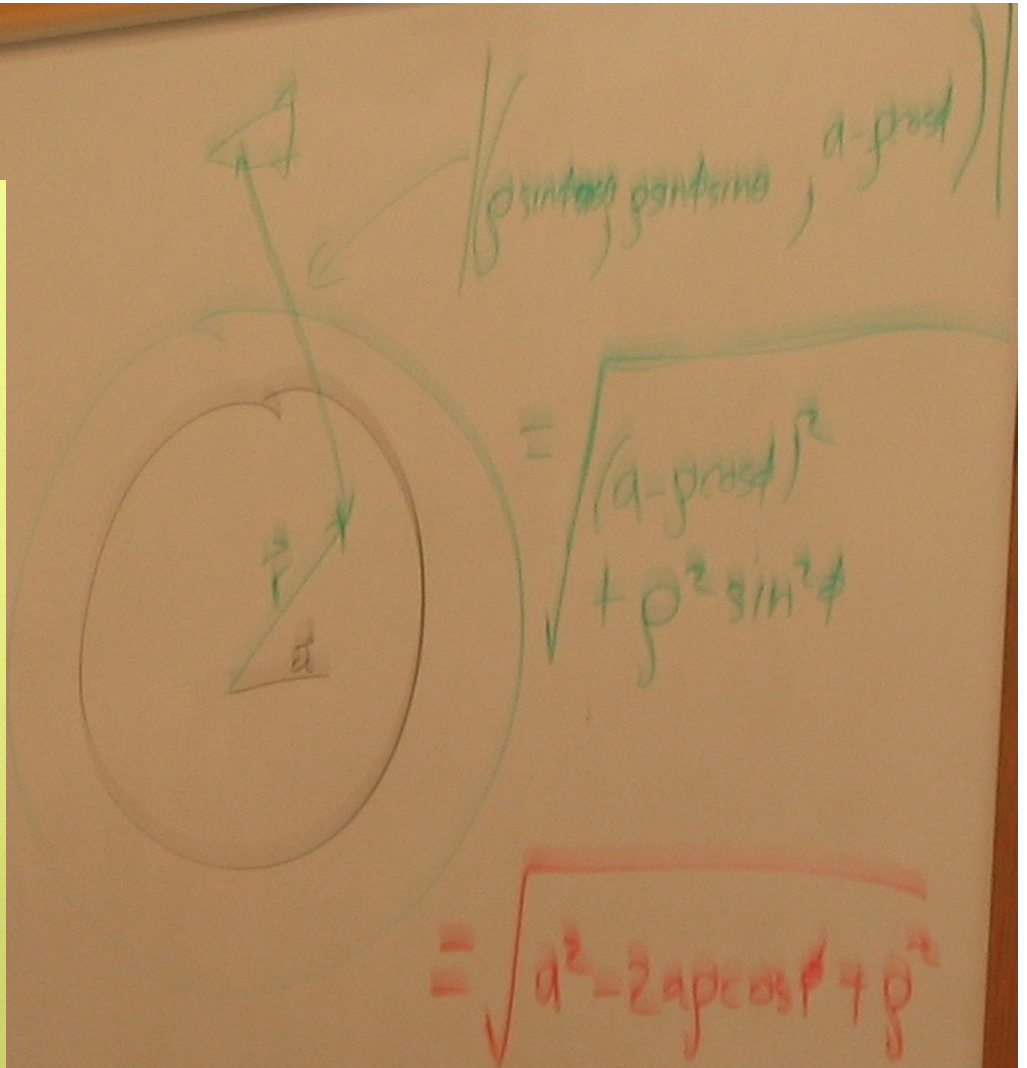 |(ρsinϕcosθ, ρsinϕsinθ, a-ρcosϕ)|
= √((a-ρcosϕ)²
+ ρ² sin²ϕ)
r⃗
a⃗
= √(a² - 2aρcosϕ + ρ²)